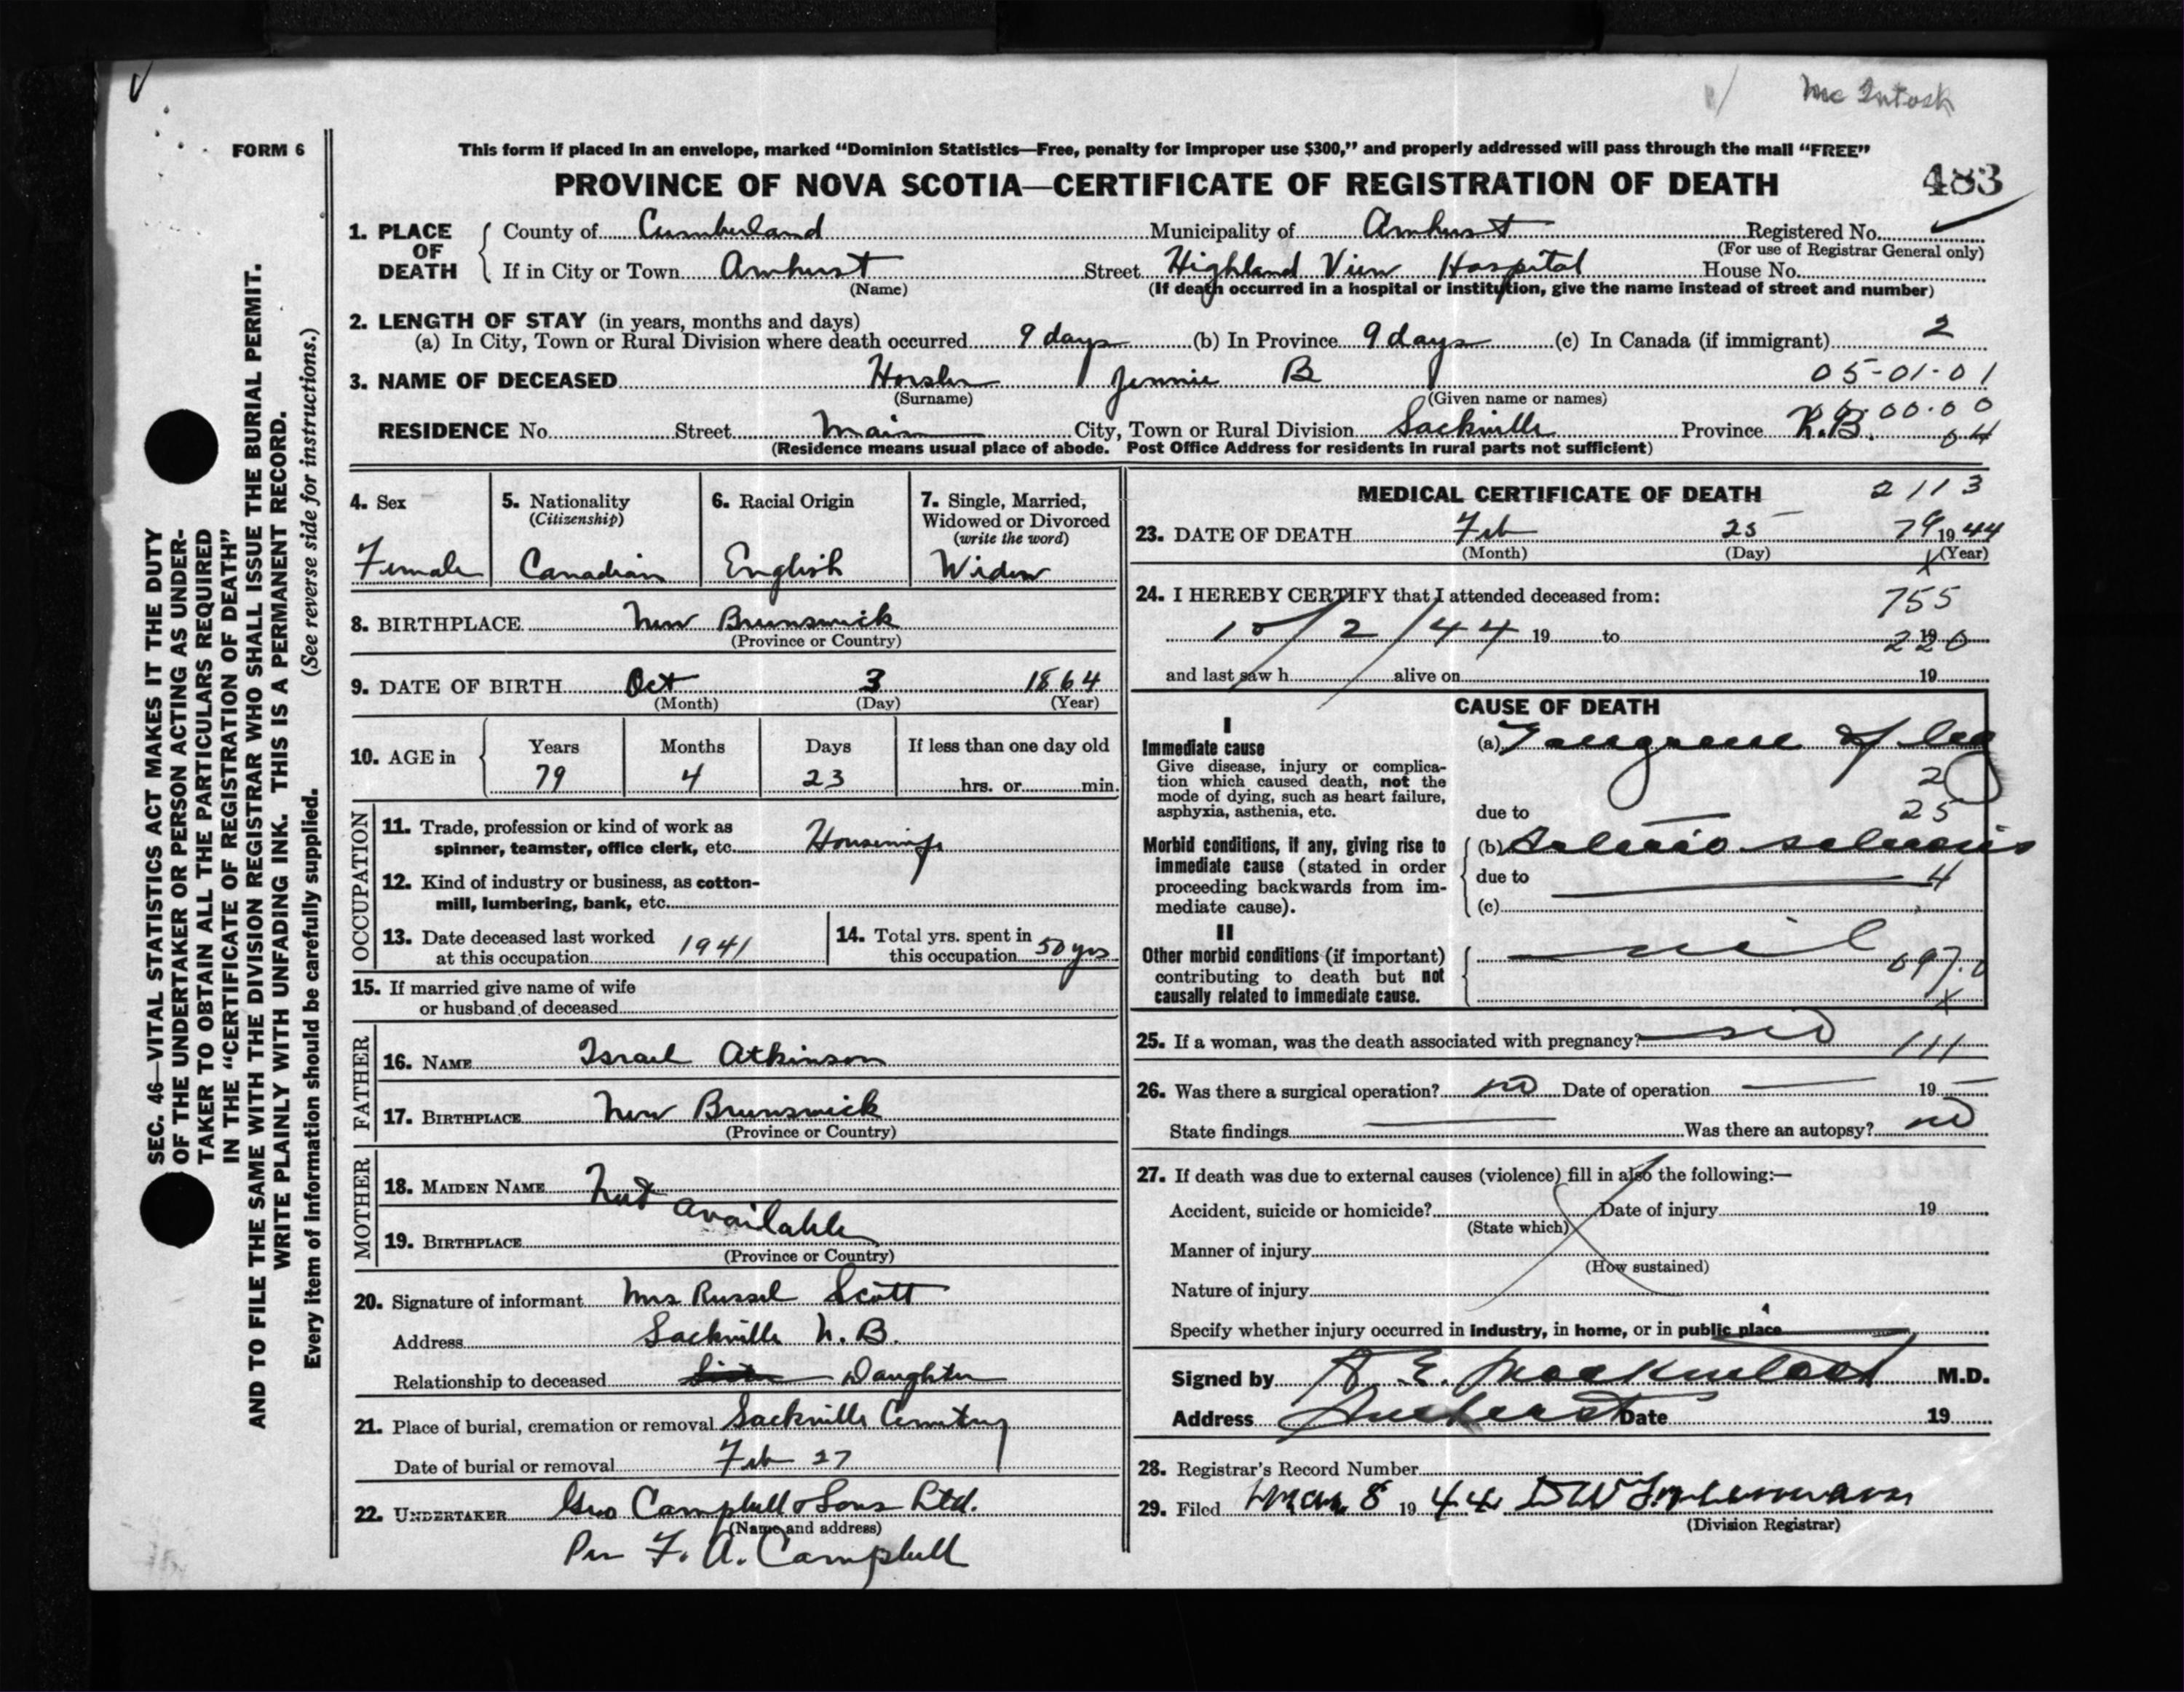 Mc Intosh
FORM 6
This form if placed in an envelope, marked “Dominion Statistics—Free, penalty for improper use $300,” and properly addressed will pass through the mail “FREE”
PROVINCE OF NOVA SCOTIA—CERTIFICATE OF REGISTRATION OF DEATH 483
SEC. 46—VITAL STATISTICS ACT MAKES IT THE DUTY
OF THE UNDERTAKER OR PERSON ACTING AS UNDER-
TAKER TO OBTAIN ALL THE PARTICULARS REQUIRED
IN THE “CERTIFICATE OF REGISTRATION OF DEATH”
AND TO FILE THE SAME WITH THE DIVISION REGISTRAR WHO SHALL ISSUE THE BURIAL PERMIT.
WRITE PLAINLY WITH UNFADING INK. THIS IS A PERMANENT RECORD.
Every item of information should be carefully supplied. (See reverse side for instructions.)
1. PLACE OF DEATH
County of Cumberland Municipality of Amherst Registered No.
(For use of Registrar General only)
If in City or Town Amherst Street Highland View Hospital House No.
(Name) (If death occurred in a hospital or institution, give the name instead of street and number)
2. LENGTH OF STAY (in years, months and days)
(a) In City, Town or Rural Division where death occurred 9 days (b) In Province 9 days (c) In Canada (if immigrant) 2
3. NAME OF DECEASED Horsler Jennie B 05-01-01
(Surname) (Given name or names) 00.00
RESIDENCE No. Street Main City, Town or Rural Division Sackville Province N.B. 04
(Residence means usual place of abode. Post Office Address for residents in rural parts not sufficient)
4. Sex
Female
5. Nationality
(Citizenship)
Canadian
6. Racial Origin
English
7. Single, Married,
Widowed or Divorced
(write the word)
Widow
8. BIRTHPLACE New Brunswick
(Province or Country)
9. DATE OF BIRTH Oct 3 1864
(Month) (Day) (Year)
10. AGE in
Years Months Days If less than one day old
79 4 23 hrs. or min.
OCCUPATION
11. Trade, profession or kind of work as
spinner, teamster, office clerk, etc. Housewife
12. Kind of industry or business, as cotton-
mill, lumbering, bank, etc.
13. Date deceased last worked
at this occupation 1941
14. Total yrs. spent in
this occupation 50 yrs
15. If married give name of wife
or husband of deceased
FATHER
16. NAME Israel Atkinson
17. BIRTHPLACE New Brunswick
(Province or Country)
MOTHER
18. MAIDEN NAME Not
available
19. BIRTHPLACE
(Province or Country)
20. Signature of informant Mrs Russel Scott
Address Sackville N.B.
Relationship to deceased Sister Daughter
21. Place of burial, cremation or removal Sackville Cemetery
Date of burial or removal Feb 27
22. UNDERTAKER Geo Campbell & Sons Ltd.
(Name and address)
Per F. A. Campbell
MEDICAL CERTIFICATE OF DEATH 2113
23. DATE OF DEATH Feb 25 79 1944
(Month) (Day) (Year)
24. I HEREBY CERTIFY that I attended deceased from: 755
15/2/44 19 to 19 220
and last saw h alive on 19
CAUSE OF DEATH
I
Immediate cause
Give disease, injury or complica-
tion which caused death, not the
mode of dying, such as heart failure,
asphyxia, asthenia, etc.
(a) Gangrene of leg
2
due to 25
Morbid conditions, if any, giving rise to
immediate cause (stated in order
proceeding backwards from im-
mediate cause).
(b) Arterio sclerosis
due to 4
(c)
II
Other morbid conditions (if important)
contributing to death but not
causally related to immediate cause.
nil
097.0
25. If a woman, was the death associated with pregnancy? no 111
26. Was there a surgical operation? no Date of operation 19
State findings Was there an autopsy? no
27. If death was due to external causes (violence) fill in also the following:—
Accident, suicide or homicide? Date of injury 19
(State which)
Manner of injury
(How sustained)
Nature of injury
Specify whether injury occurred in industry, in home, or in public place
Signed by E. Mackintosh M.D.
Address Amherst Date 19
28. Registrar's Record Number
29. Filed Mar 8 1944
(Division Registrar)